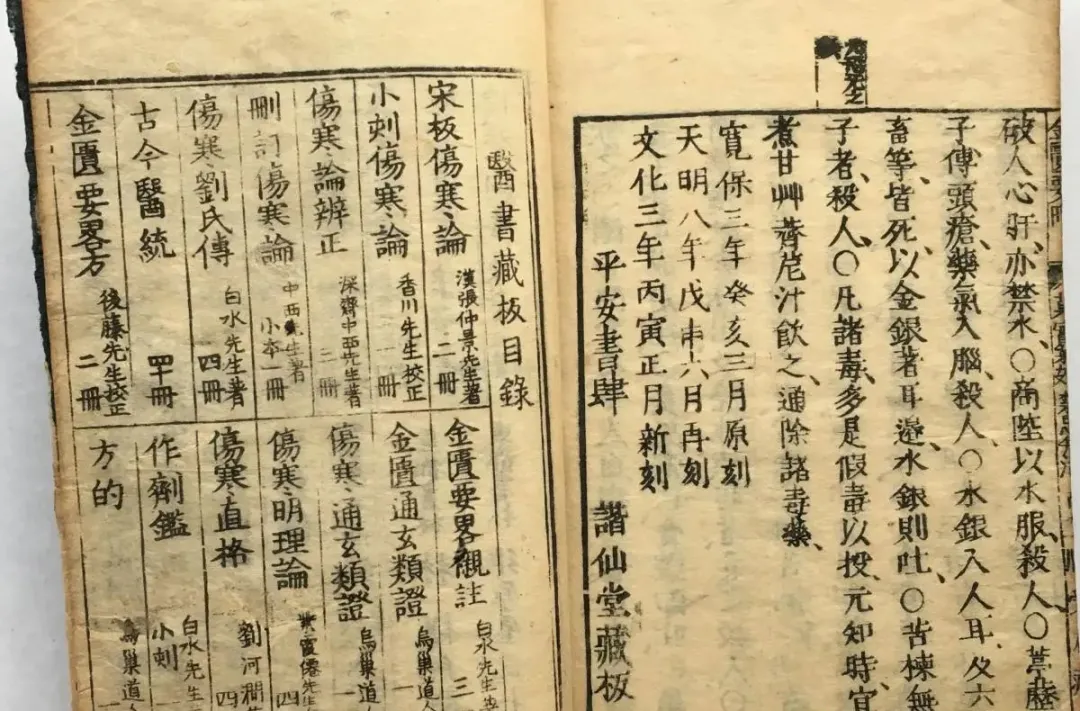 破人心肝亦禁水○商陸以水服殺人○葶藶
子傅頭瘡藥氣入腦殺人○水銀入人耳及六
畜等皆死以金銀著耳邊水銀則吐○苦楝無
子者殺人○凡諸毒多是假毒以投元知時宜
煮甘艸薺苨汁飲之通除諸毒藥
寛保三年癸亥三月原刻
天明八年戊申六月再刻
文化三年丙寅正月新刻
平安書肆 諧仙堂藏板
醫書藏板目錄
宋板傷寒論 漢張仲景先生著 二冊
小刻傷寒論 香川先生校正 一冊
傷寒論辨正 深齋中西先生著 三冊
刪訂傷寒論 中西先生著 小本一冊
傷寒劉氏傳 白水先生著 四冊
古今醫統 四十冊
金匱要畧方 後藤先生校正 二冊
金匱要畧觀註 白水先生著 三
金匱通玄類證 烏巢道人 一
傷寒通玄類證 烏巢道人 一
傷寒明理論 四
傷寒直格 劉河澗 四
作劑鑑 白水先生 小刻
方的 烏巢道人